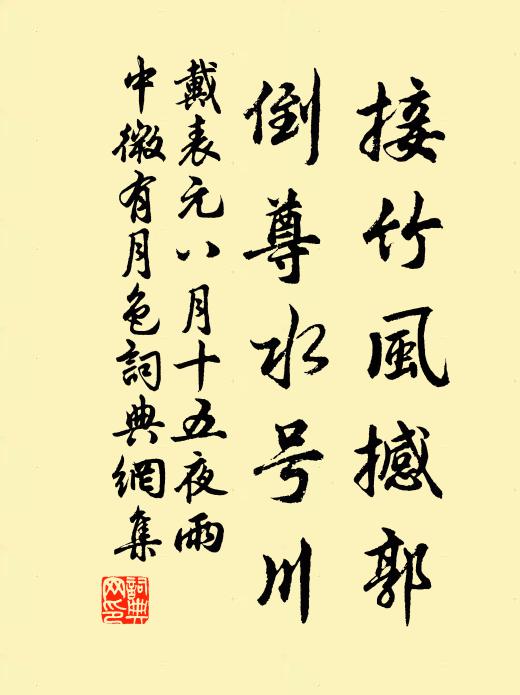 接竹風撼郭
倒尊水号川
戴表元八月十五夜雨
中微有月色詞典網集
詞典
网印